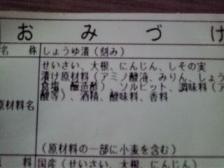 おみづけ
名 称 しょうゆ漬(刻み)
せいさい、大根、にんじん、しその実
漬け原材料(アミノ酸液、みりん、しょうゆ
食塩、醸造酢)、ソルビット、調味料(ア
酸等)、酒精、酸味料、香料
原材料名
(原材料の一部に小麦を含む)
料 国産